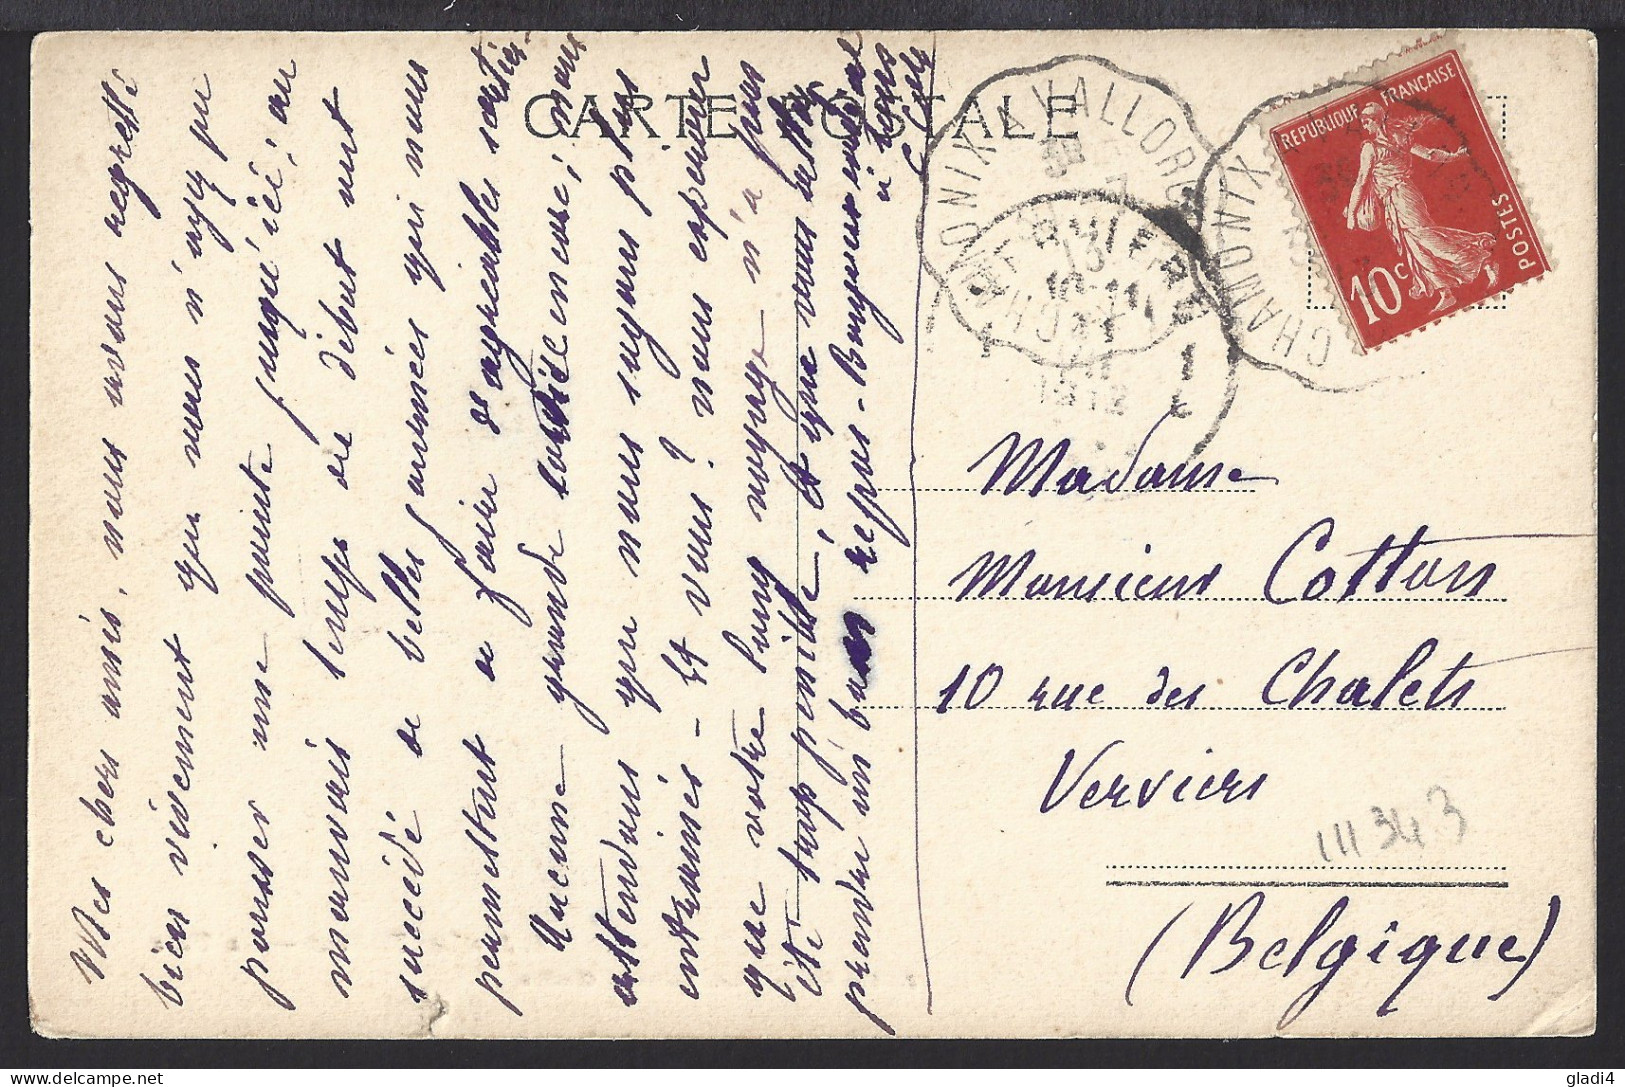 CARTE POSTALE
Mes chers amis, nous avons regretté
bien vivement que vous n'ayez pu
pousser une pointe jusqu'ici; au
mauvais temps du début ont
succédé de belles journées qui nous
permettent de faire d'agréables sorties.
Aucune grande course encore; nous
attendons que nous soyons plus
entrainés - Et vous? nous espérons
que votre long voyage n'a pas
été trop pénible, et que vous allez
prendre un bon repos - Bonjour cordial
à tous
CHAMONIX A VALLORBE
CHAMONIX
13
10-11
VII
1912
REPUBLIQUE FRANÇAISE
POSTES
10c
Madame
Monsieur Cotton
10 rue des Chalets
Verviers
(Belgique)
111343
gladi4